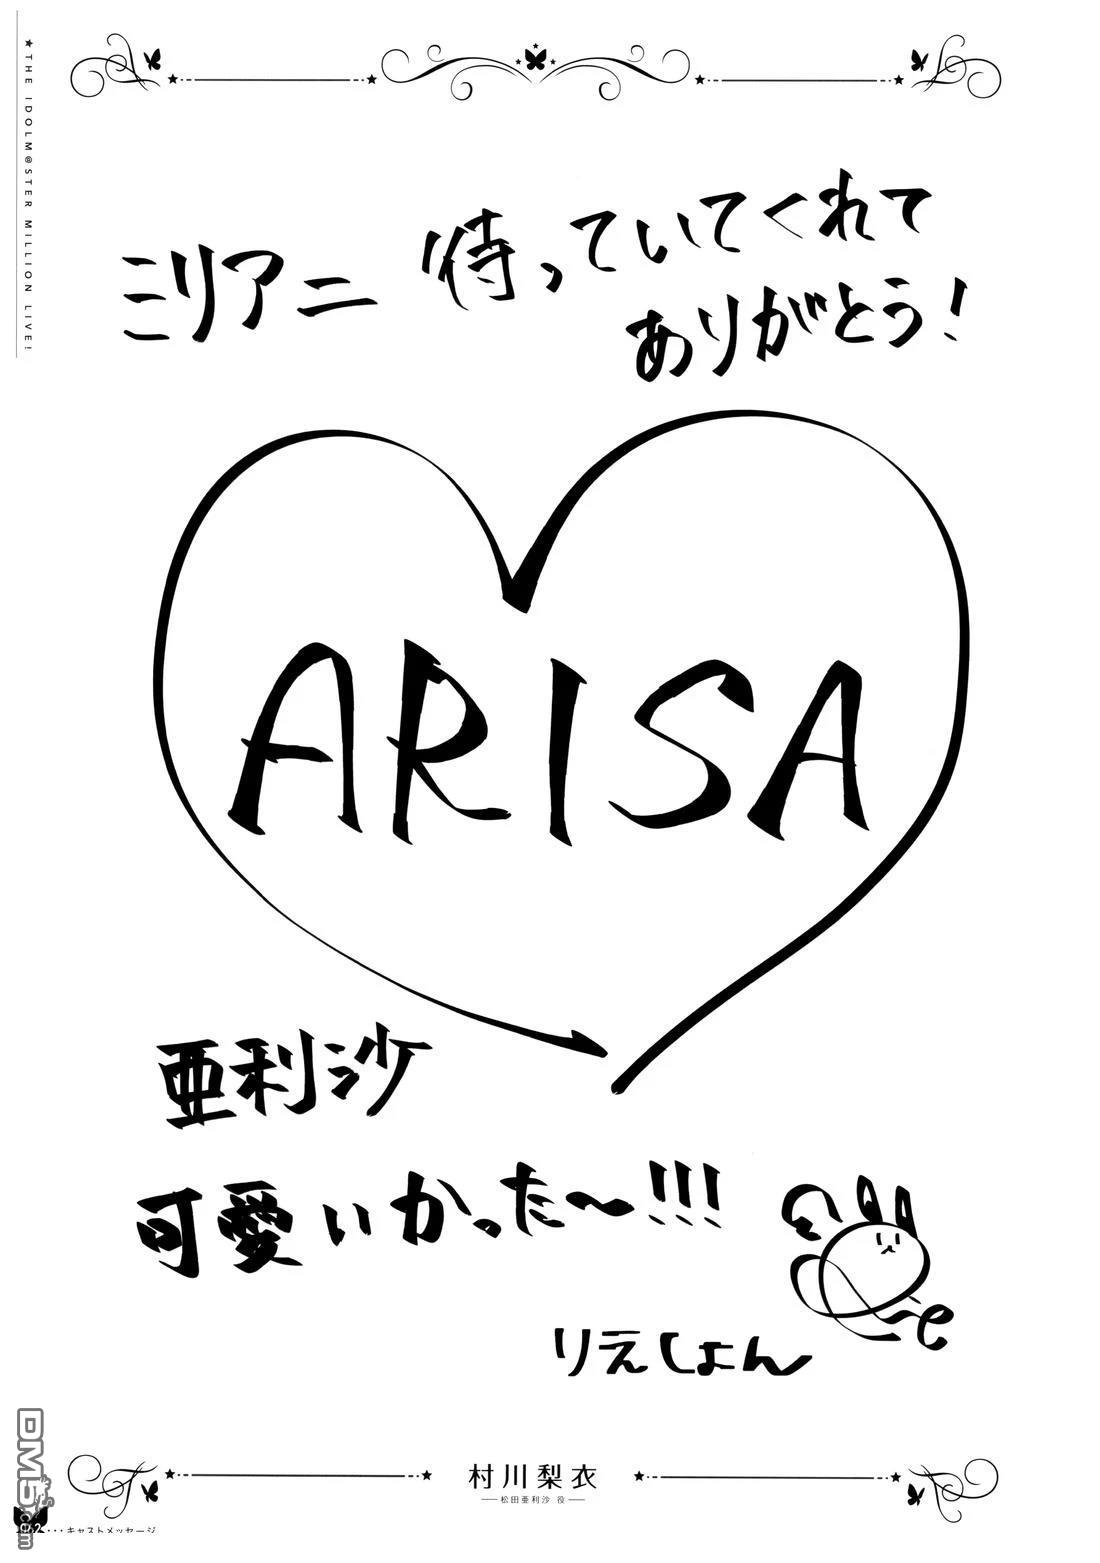 ★THE IDOLM@STER MILLION LIVE!
ミリアニ 待っていてくれて
ありがとう!
ARISA
亜利沙
可愛いかった〜!!!
りえしょん
村川梨衣
松田亜利沙 役
2・・・キャストメッセージ
DM5.com